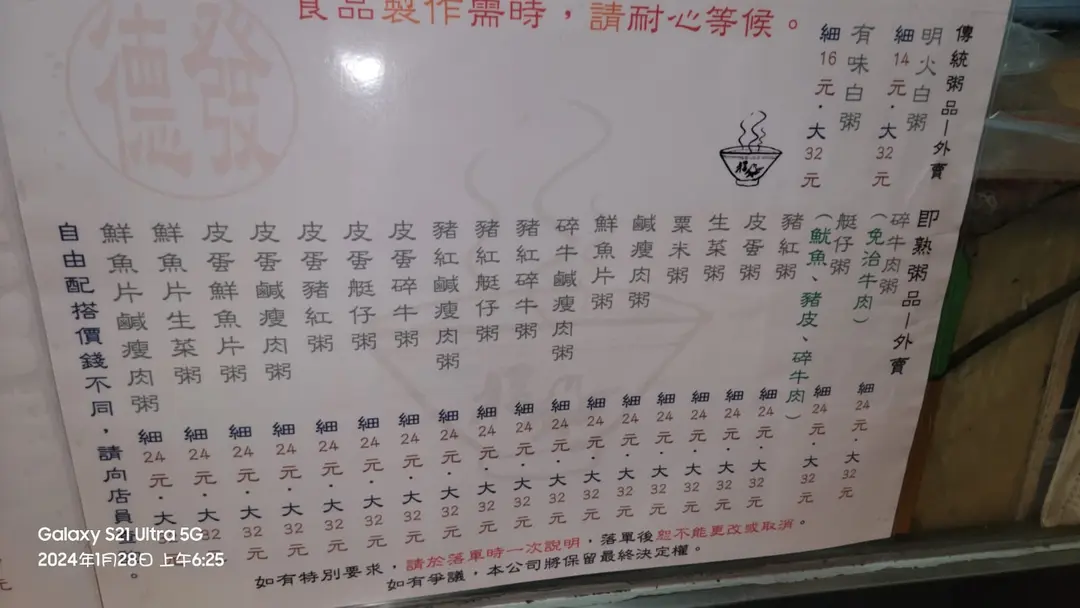 食品製作需時，請耐心等候。
發德
傳統粥品—外賣
明火白粥 細14元．大32元
有味白粥 細16元．大32元
即熟粥品—外賣
碎牛肉粥（免治牛肉） 細24元．大32元
艇仔粥（魷魚、豬皮、碎牛肉） 細24元．大32元
豬紅粥 細24元．大32元
皮蛋粥 細24元．大32元
生菜粥 細24元．大32元
粟米粥 細24元．大32元
鹹瘦肉粥 細24元．大32元
鮮魚片粥 細24元．大32元
碎牛鹹瘦肉粥 細24元．大32元
豬紅碎牛粥 細24元．大32元
豬紅艇仔粥 細24元．大32元
豬紅鹹瘦肉粥 細24元．大32元
皮蛋碎牛粥 細24元．大32元
皮蛋艇仔粥 細24元．大32元
皮蛋豬紅粥 細24元．大32元
皮蛋鹹瘦肉粥 細24元．大32元
皮蛋鮮魚片粥 細24元．大32元
鮮魚片生菜粥 細24元．大
鮮魚片鹹瘦肉粥 細24元．大
自由配搭價錢不同，請向店員
如有特別要求，請於落單時一次說明，落單後恕不能更改或取消。
如有爭議，本公司將保留最終決定權。
Galaxy S21 Ultra 5G
2024年1月28日 上午6:25